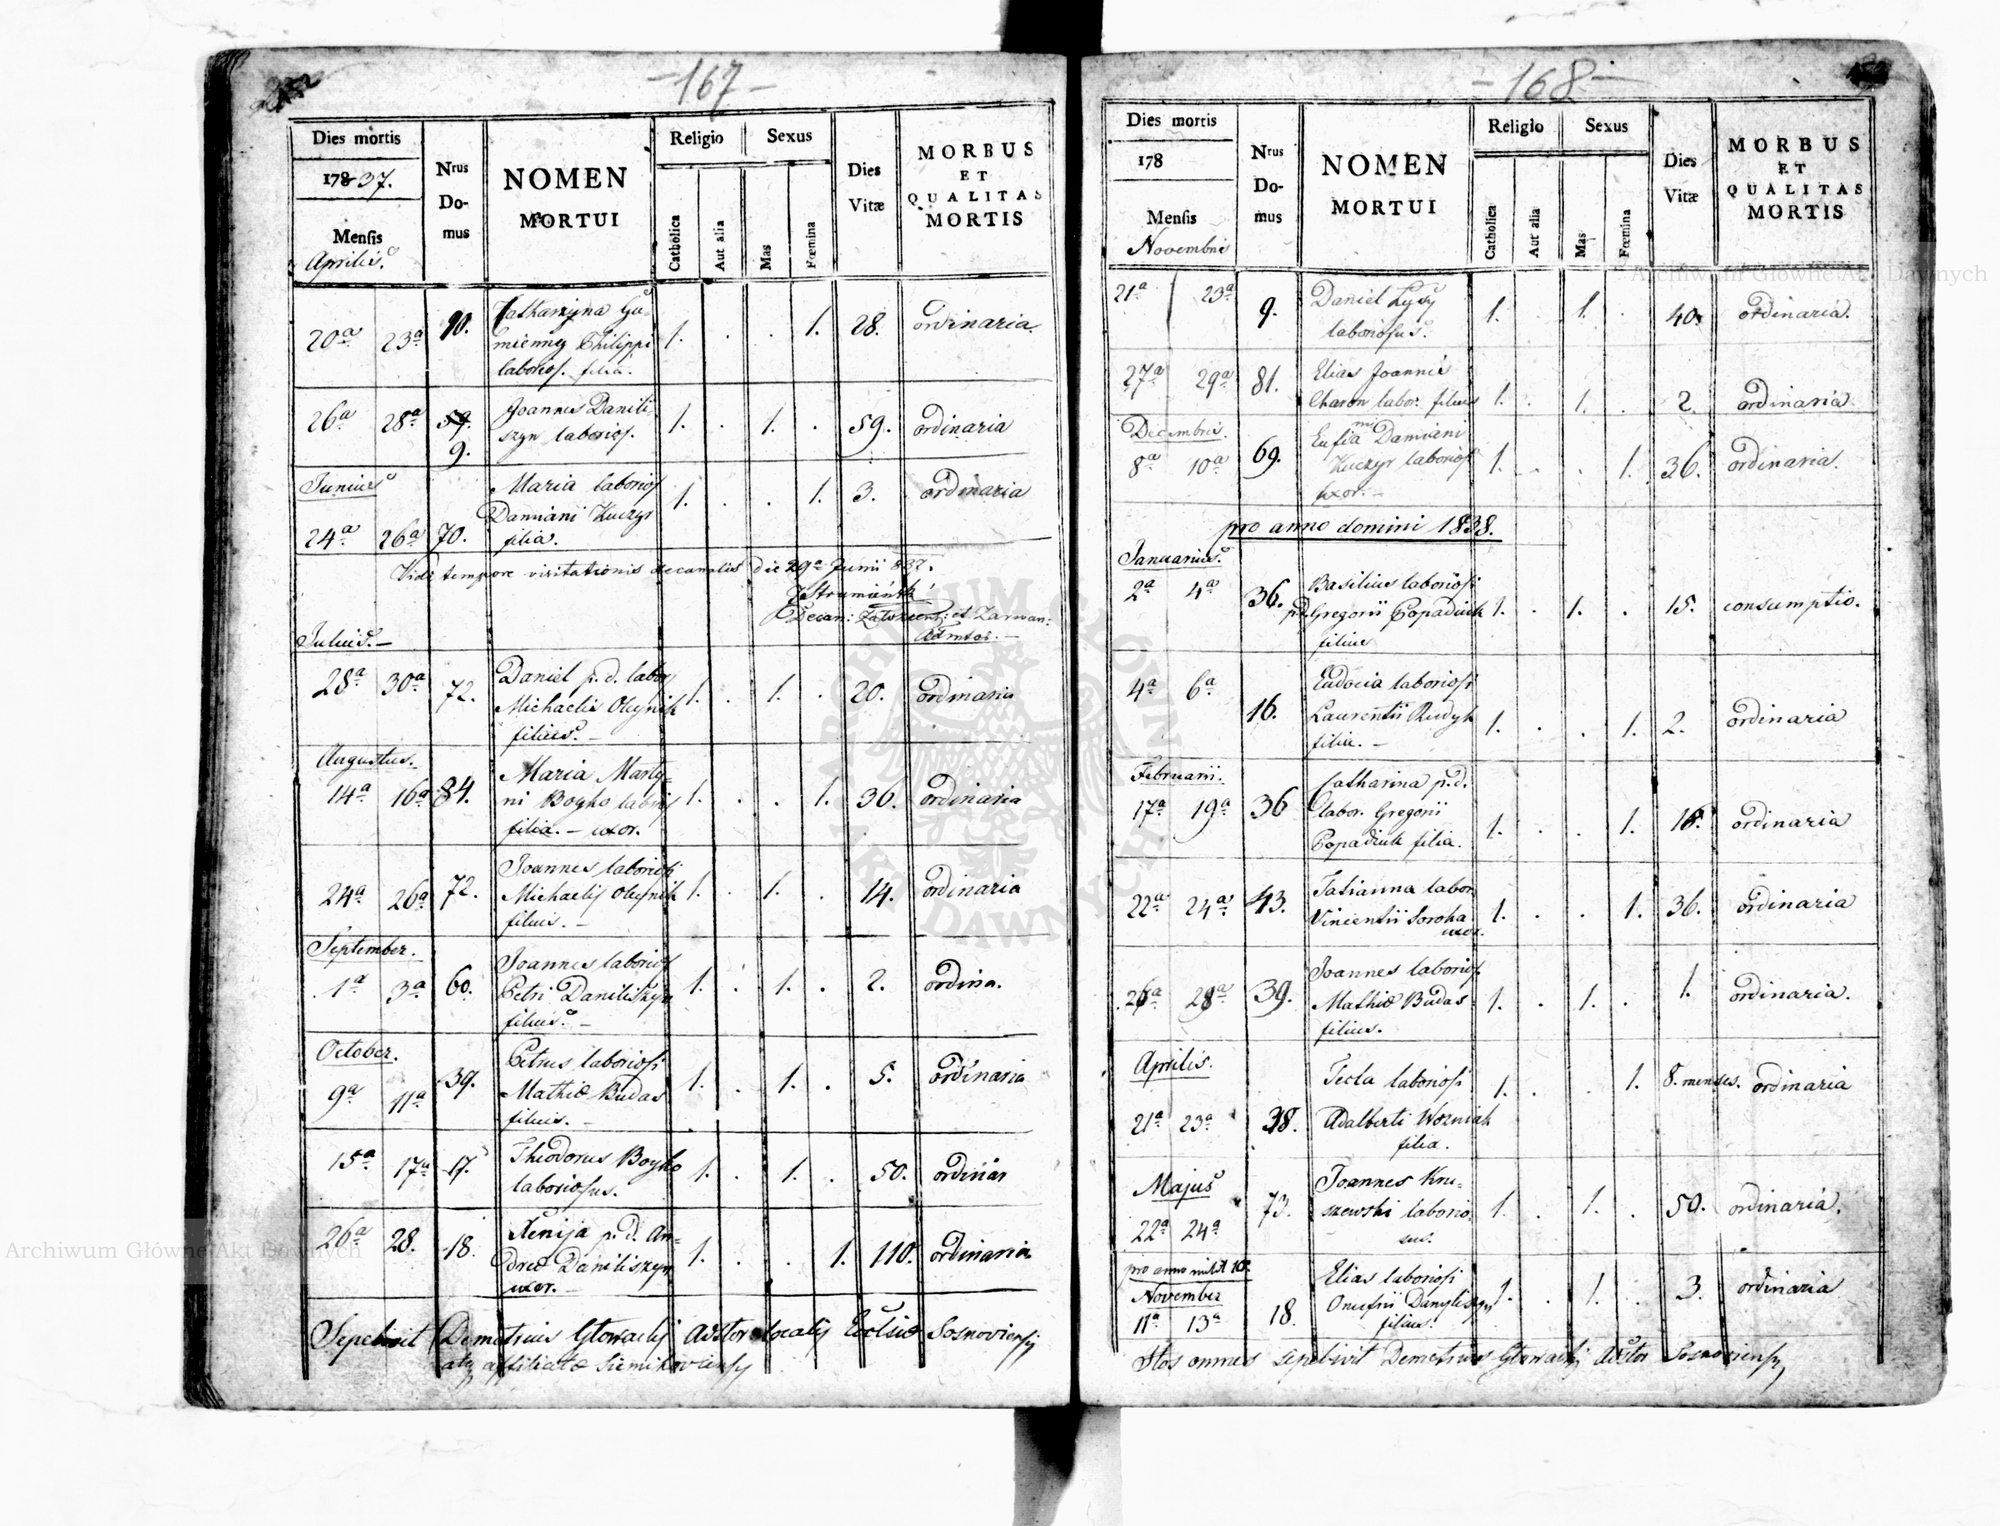 -167-
Dies mortis
17837.
Mensis
Aprilis.
Nrus
Do-
mus
NOMEN
MORTUI
Religio
Catholica
Aut alia
Sexus
Mas
Fœmina
Dies
Vitæ
MORBUS
ET
QUALITAS
MORTIS
20a 23a 90. Catharzyna Gu- 1. . . 1. 28. ordinaria
mienny Philippi
laborios. filia.
26a 28a 59. Joannes Danili- 1. . 1. . 59. ordinaria
9. szyn laborios.
Junius
24a 26a 70. Maria laborios 1. . . 1. 3. ordinaria
Damiani Kuczyr
filia.
Vidi tempore visitationis decanalis die 29a Junii 837.
Julius. -
28a 30a 72. Daniel p. d. labor 1. . 1. . 20. ordinaria
Michaelis Oleynik
filius. -
Augustus.
14a 16a 84. Maria Marty- 1. . . 1. 36. ordinaria
ni Boyko laborios
filia. - uxor.
24a 26a 72. Joannes laboriosi 1. . 1. . 14. ordinaria
Michaelis Oleynik
filius. -
September.
1a 3a 60. Joannes laborios 1. . 1. . 2. ordina.
Petri Daniliszyn
filius. -
October.
9a 11a 39. Petrus laboriosi 1. . 1. . 5. ordinaria
Mathiæ Budas
filius. -
15a 17a 17. Theodorus Boyko 1. . 1. . 50. ordinar
laboriosus.
26a 28. 18. Xenija p. d. An- 1. . . 1. 110. ordinaria
dreæ Daniliszyn
uxor. -
Sepelivit Demetrius Głowacki Adstor Localis Ecclsiæ Sosnoviensis
-168-
Dies mortis
178
Mensis
Novembris
Nrus
Do-
mus
NOMEN
MORTUI
Religio
Catholica
Aut alia
Sexus
Mas
Fœmina
Dies
Vitæ
MORBUS
ET
QUALITAS
MORTIS
21a 23a 9. Daniel Łysy 1. . 1. . 40. ordinaria.
laboriosus.
27a 29a 81. Elias Joannis
Charon labor. filius 1. . 1. . 2. ordinaria.
Decembris.
8a 10a 69. Damiani 1. . . 1. 36. ordinaria.
Kuczyr laborios
uxor. -
pro anno domini 1838.
Januarius.
2a 4a 36. Basilius laboriosi
pd. Gregorii Popadiuk 1. . 1. . 15. consumptio.
filius
4a 6a 16. Eudocia laboriosi
Laurentii Rudyk 1. . . 1. 2. ordinaria
filia. -
Februarii.
17a 19a 36 Catharina p. d.
labor. Gregorii 1. . . 1. 16. ordinaria
Popadiuk filia.
22a 24a 43. Tatianna labor.
Vincentii Soroka 1. . . 1. 36. ordinaria
uxor.
26a 28a 39. Joannes laborios.
Mathiæ Budas 1. . 1. . 1. ordinaria.
filius.
Aprilis.
21a 23a 38. Tecla laboriosi 1. . . 1. 8. menses. ordinaria
Adalberti Wozniak
filia.
Majus
22a 24a 73. Joannes Kru-
szewski laborio 1. . 1. . 50. ordinaria.
sus.
November
11a 13a 18. Elias laboriosi
Onufrii Danyliszyn 1. . 1. . 3. ordinaria
filius.
Hos omnes sepelivit Demetrius Głowacki Adstor Sosnoviensis
Archiwum Główne Akt Dawnych
Archiwum Główne Akt Dawnych
ARCHIWUM GŁÓWNE AKT DAWNYCH